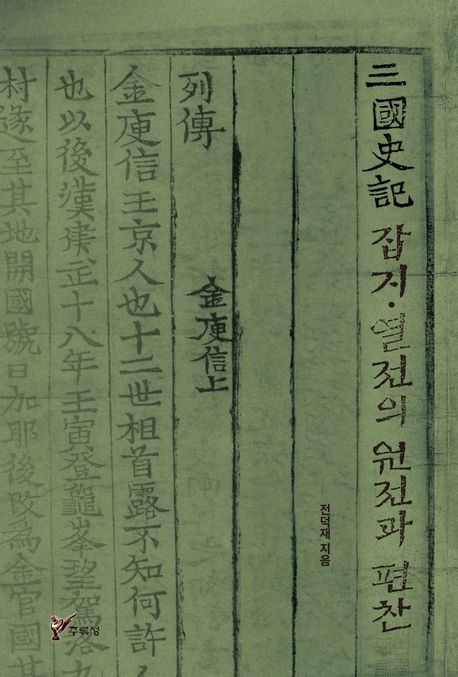 三國史記 잡지·열전의 원전과 편찬
전덕재 지음
列傳
金庾信上
金庾信王京人也十二世祖首露不知何許人
也以後漢建武十八年壬寅登龜峯望駕洛九
村遂至其地開國號曰加耶後改爲金官國其
주류성